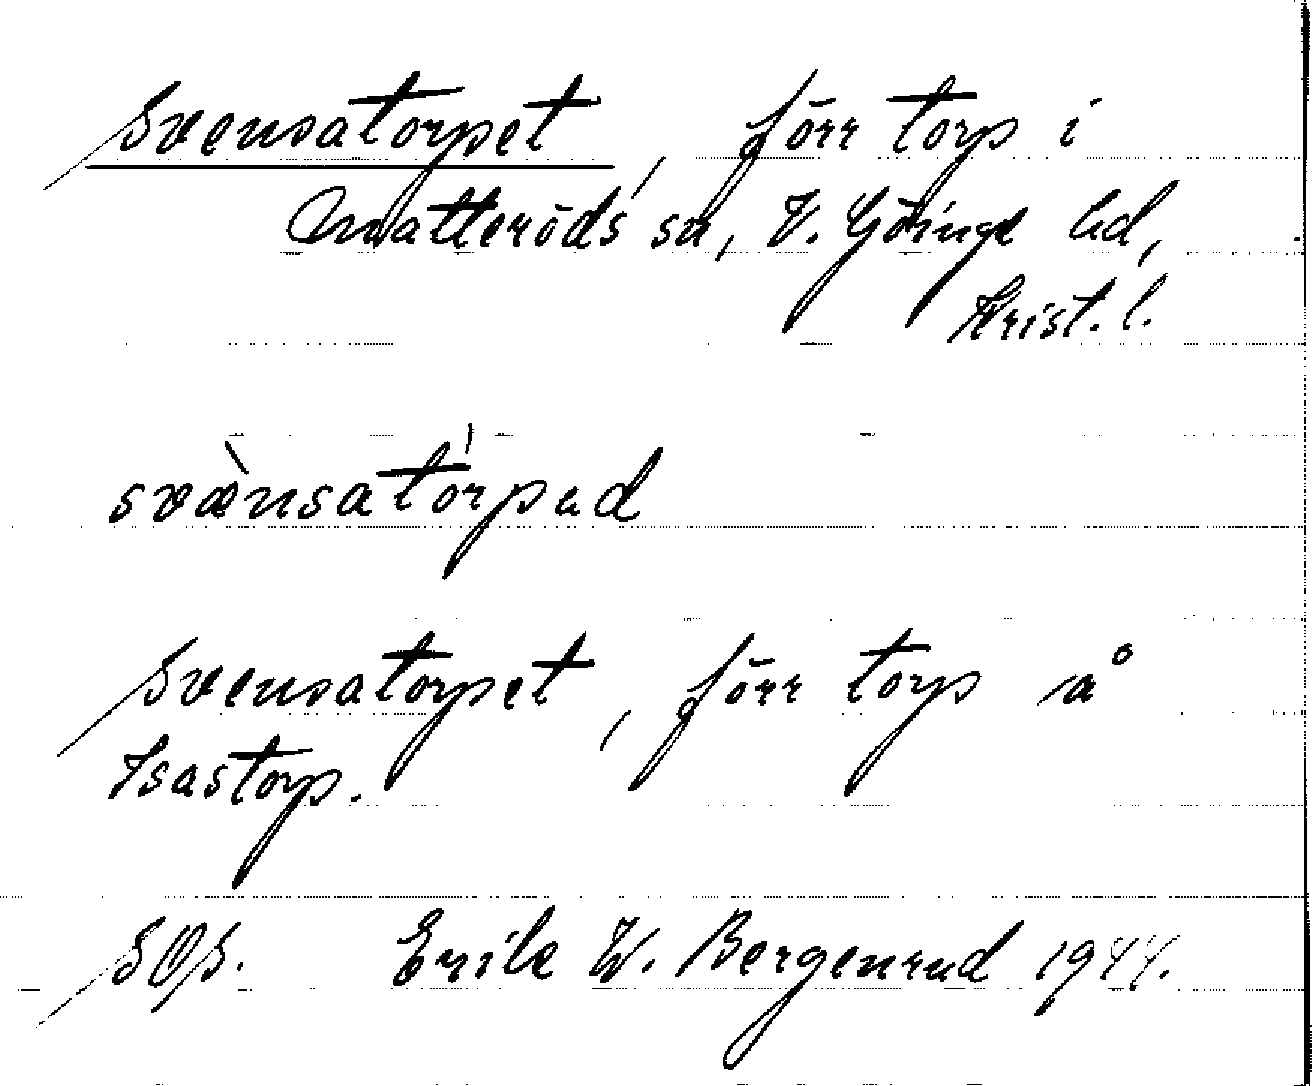 Svensatorpet, förr torp i
Matteröds sn, V. Göinge hd,
Krist. l.
svæ̀nsatórpad
Svensatorpet, förr torp å
Isastorp.
SOS. Erik W. Bergenrud 1944.